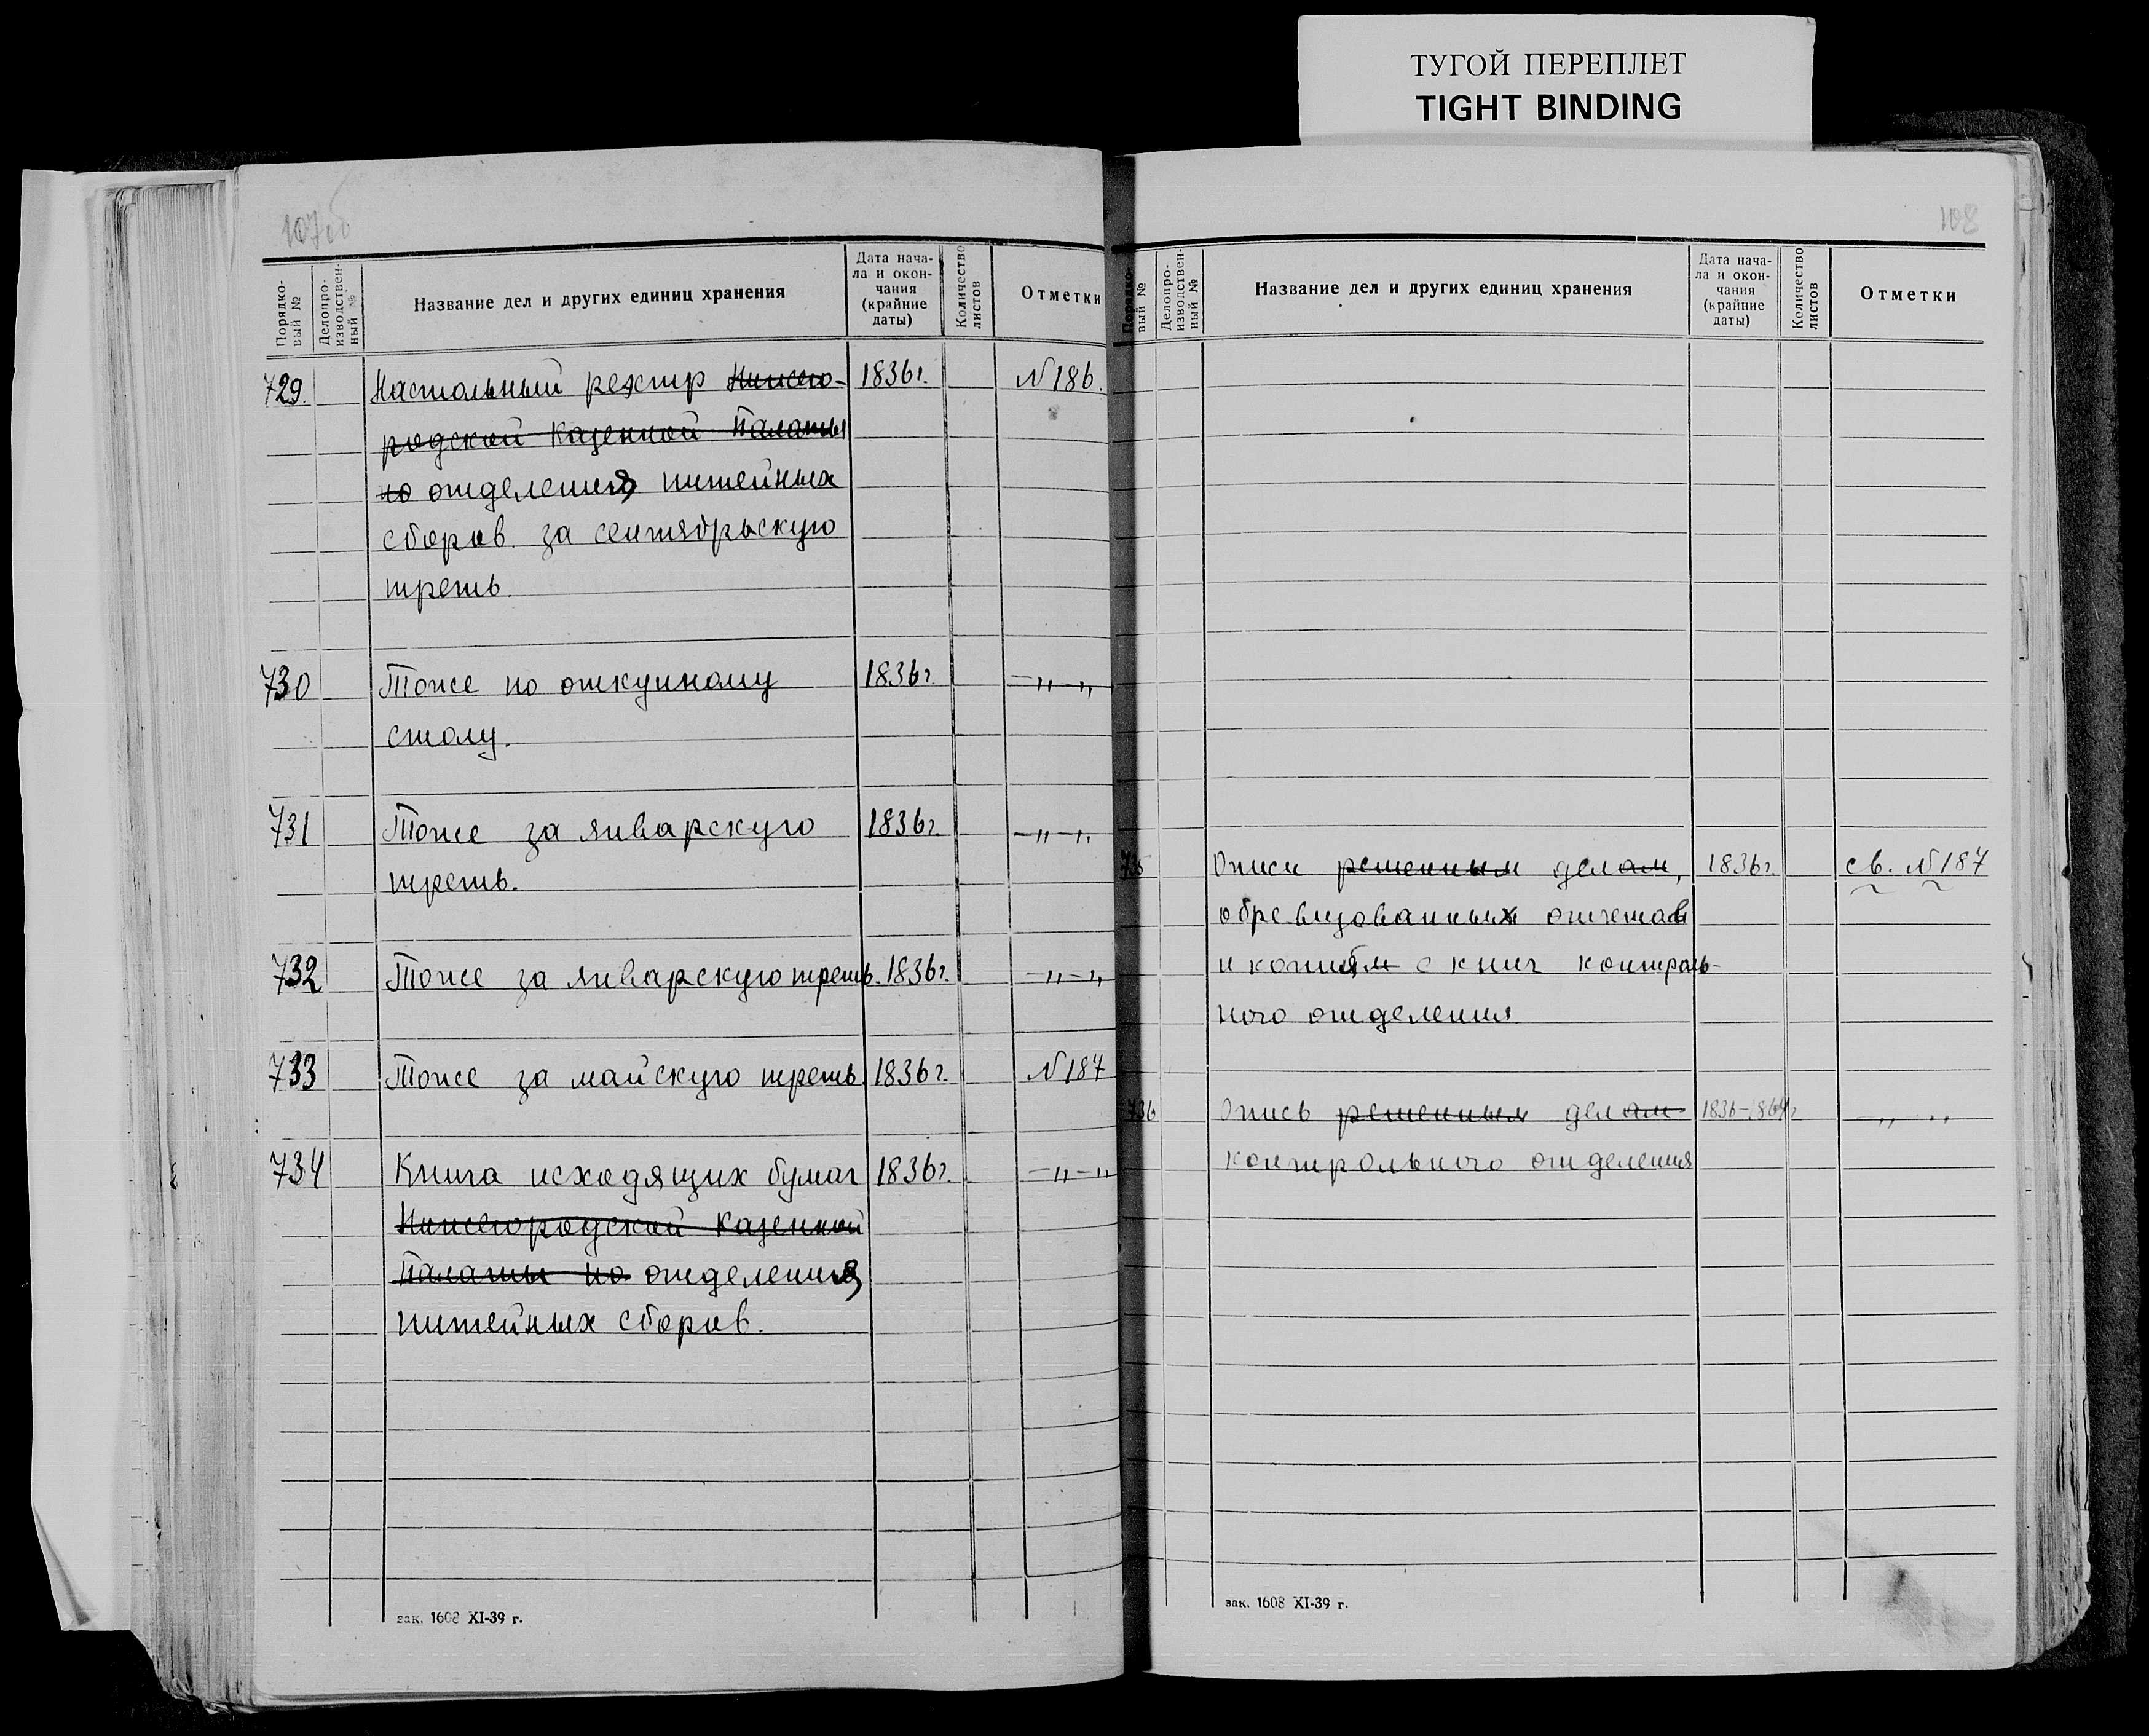 ТУГОЙ ПЕРЕПЛЕТ
TIGHT BINDING
107об
Порядко-
вый №
Делопро-
изводствен-
ный №
Название дел и других единиц хранения
Дата нача-
ла и окон-
чания
(крайние
даты)
Количество
листов
Отметки
729. Настольный реэстр Нижего- 1836г. №186.
родской Казенной Палаты
по отделения питейных
сборов за сентябрьскую
треть.
730 Тоже по откупному 1836г. —„—„
столу.
731 Тоже за январскую 1836г. —„—„
треть.
732 Тоже за январскую треть. 1836г. —„—„
733 Тоже за майскую треть 1836г. №187
734 Книга исходящих бумаг 1836г. —„—„
Нижегородской Казенной
Палаты по отделения
питейных сборов.
зак. 1608 XI-39 г.
108
Порядко-
вый №
Делопро-
изводствен-
ный №
Название дел и других единиц хранения
Дата нача-
ла и окон-
чания
(крайние
даты)
Количество
листов
Отметки
735 Описи решенным делам, 1836г. св. №187
обревизованных отчетов
и копиям с книг контроль-
ного отделения
736 Опись решенным делам 1836-1864г „ „
контрольного отделения
зак. 1608 XI-39 г.